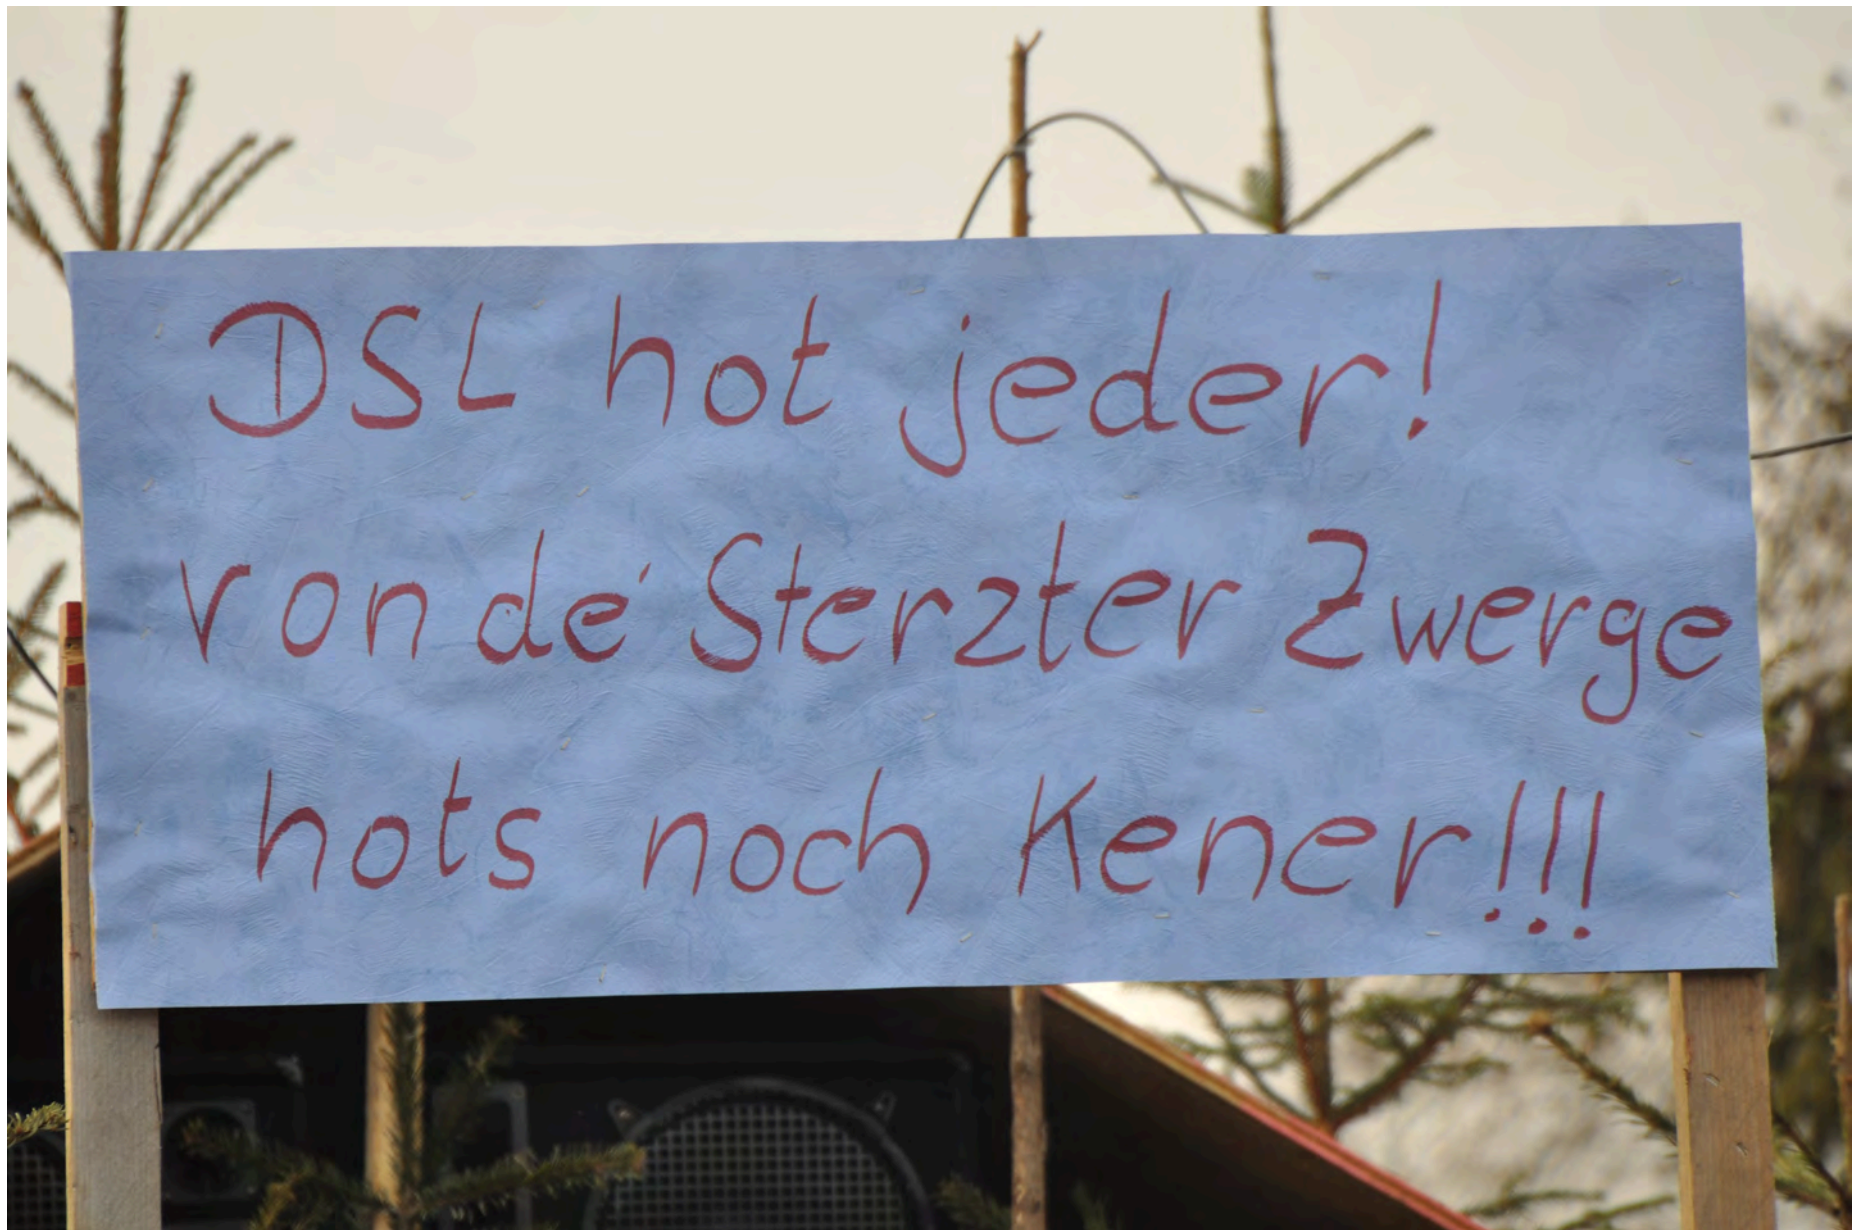 DSL hot jeder!
von dé Sterzter Zwerge
hots noch Kener!!!